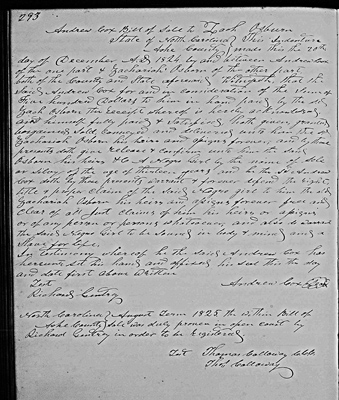 293
Andrew Cox Bill of Sale to Zach Osburn
State of North Carolina This Indenture
Ashe County made this the 20th
day of December A.D. 1824 by and between Andrew Cox
of the one part & Zachariah Osborn of the other part
both of the County and State aforesaid Witnesseth that the
said Andrew Cox for and in consideration of the Sum of
Four hundred Dollars to him in hand paid by the sd
Zach Osburn the receipt whereof is hereby acknowledged
and himself fully satisfied hath given granted
bargained Sold Conveyed and delivered unto him the sd
Zachariah Osborn his heirs and assigns forever and by these
presents doth give release & confirm unto him the sd Zachariah
Osborn his heirs &c A Negro Girl by the name of
of the age of thirteen years and he the sd Andrew
Cox doth by these presents warrant & forever defend the right
title & claim of the said Negro girl to him the sd
Zachariah Osborn his heirs and assigns forever free and
Clear of all Just claims of him his heirs or assigns
or of any person or persons Whatsoever, and also doth warrant
the said Negro Girl to be Sound in body & mind and a
Slave for life.
In testimony whereof he the said Andrew Cox has
hereunto set his hand and affixed his seal this the day
and date first above Written
Test Andrew Cox Seal
Richard Gentry
North Carolina August Term 1825 the within Bill of
Ashe County Sale was duly proven in open court by
Richard Gentry in order to be Registered
Test Thomas Calloway Clk
Thos Calloway